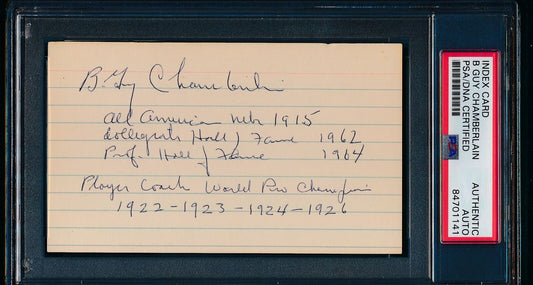 B. Guy Chamberlin
All American Nebr 1915
Collegiate Hall of Fame 1962
Prof. Hall of Fame 1964
Player Coach World Pro Champion
1922-1923-1924-1926
INDEX CARD
B GUY CHAMBERLAIN
PSA/DNA CERTIFIED
AUTHENTIC
AUTO
84701141
PSA